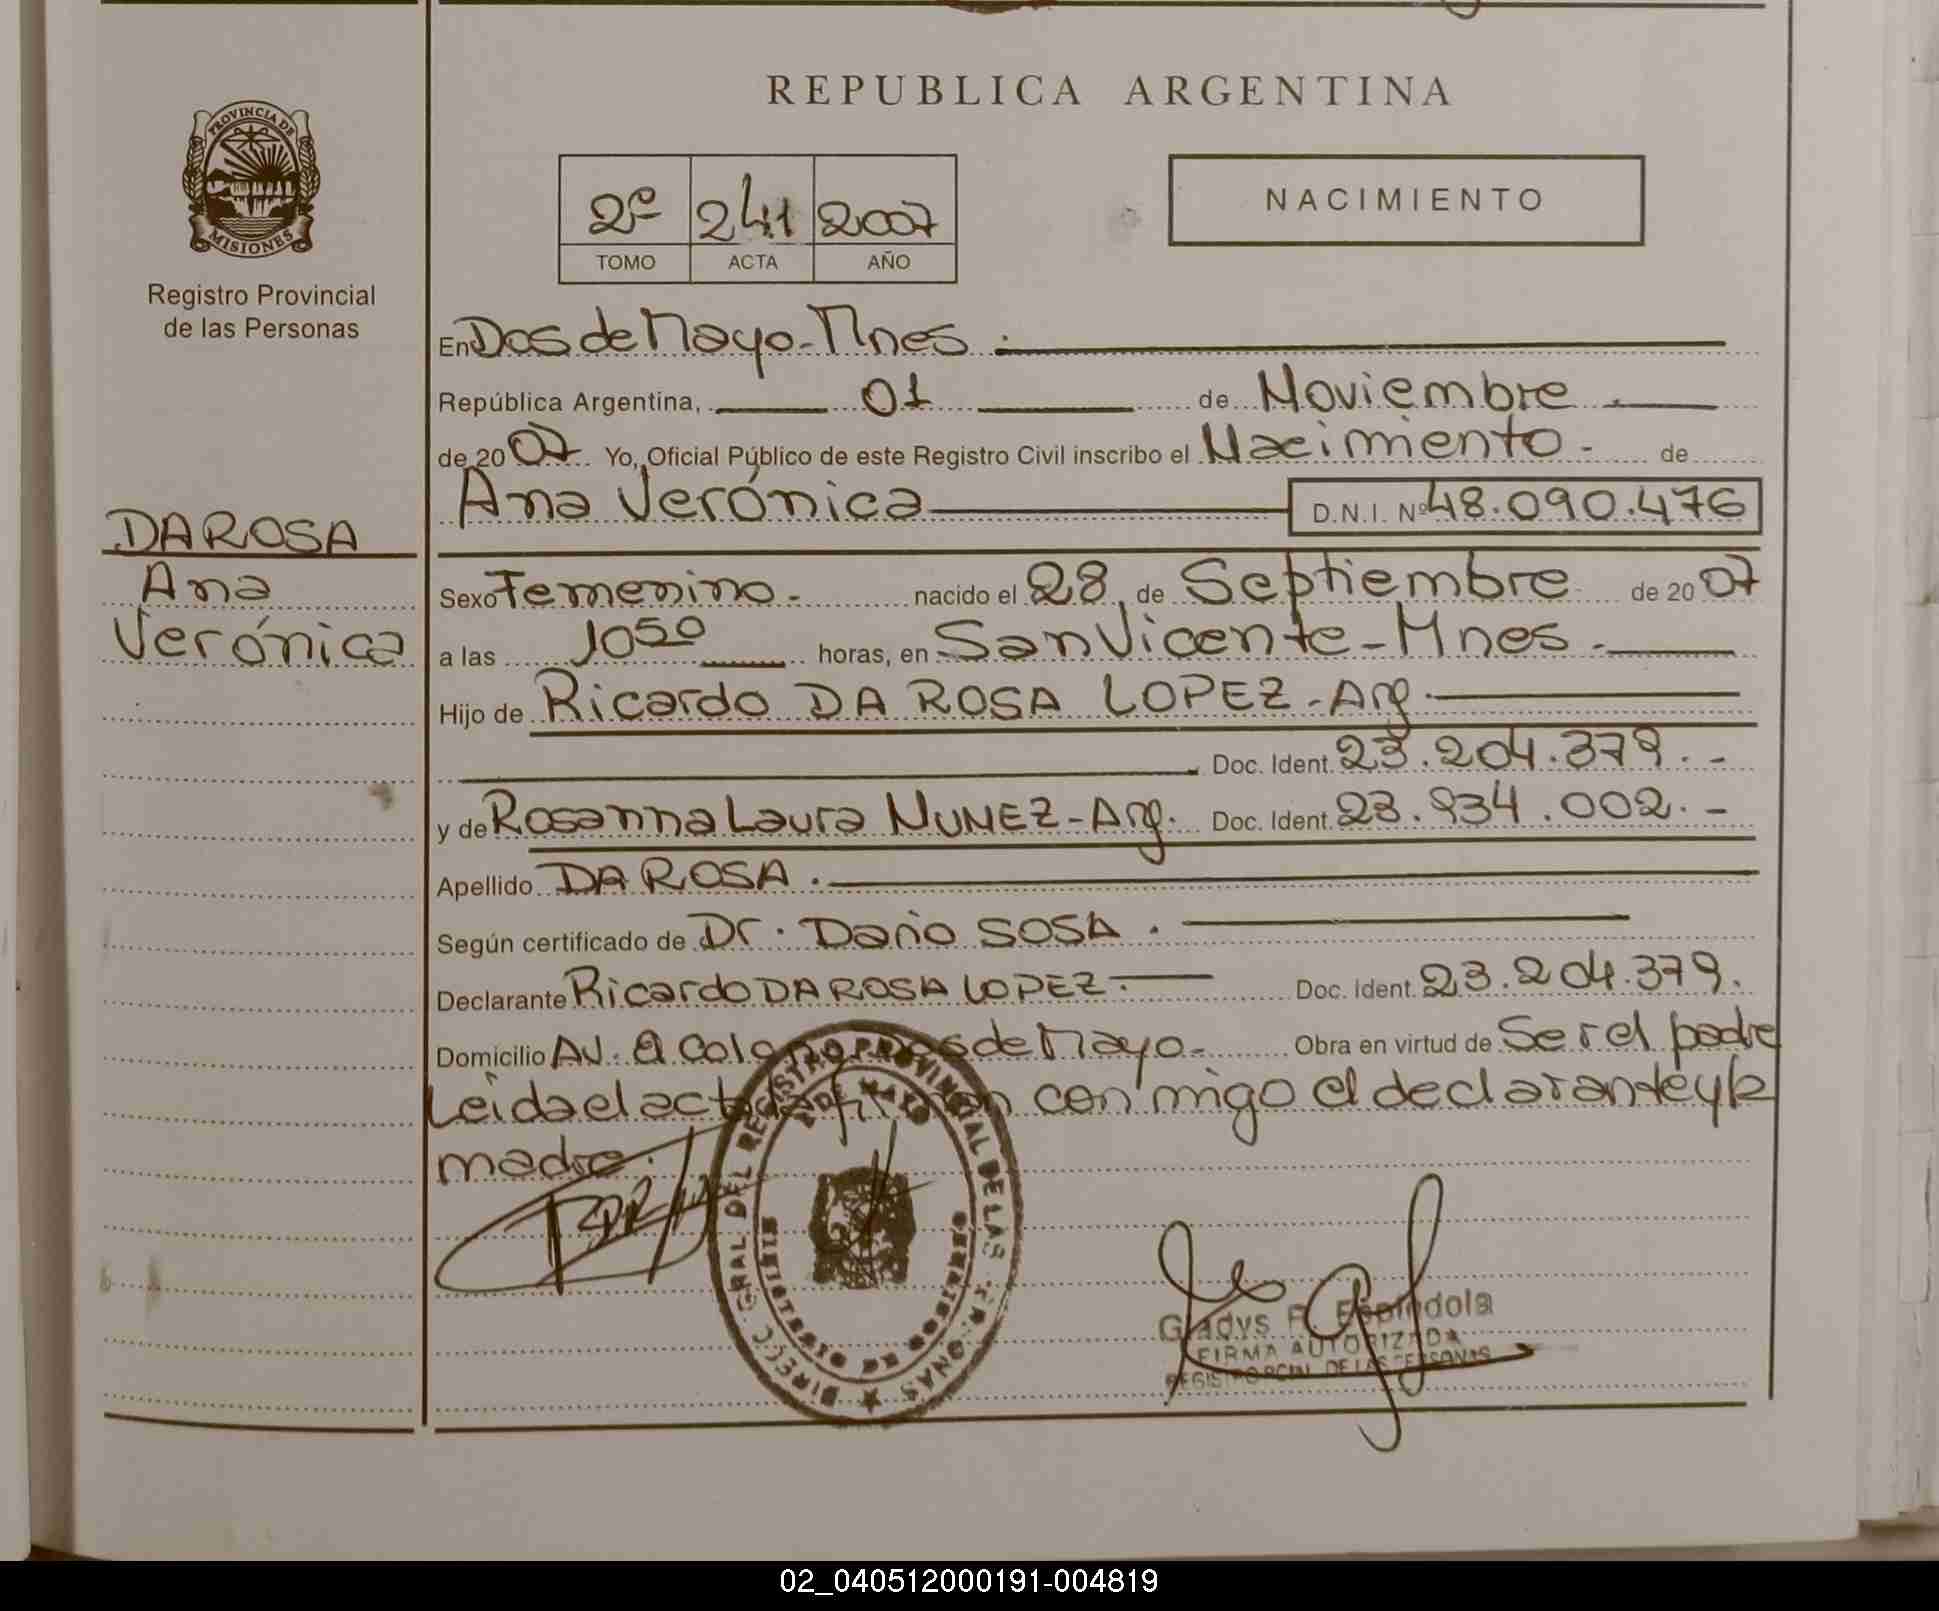 REPUBLICA ARGENTINA
PROVINCIA DE
MISIONES
Registro Provincial
de las Personas
2º 241 2007
TOMO ACTA AÑO
NACIMIENTO
En Dos de Mayo - Mnes.
República Argentina, 01 de Noviembre
de 2007 Yo, Oficial Público de este Registro Civil inscribo el Nacimiento - de
Ana Verónica D.N.I. Nº 48.090.476
DA ROSA
Ana
Verónica
Sexo Femenino - nacido el 28 de Septiembre de 2007
a las 10 50 horas, en San Vicente - Mnes.
Hijo de Ricardo DA ROSA LOPEZ - Arg.
Doc. Ident. 23.204.379. -
y de Rosanna Laura NUNEZ - Arg. Doc. Ident. 23.934.002. -
Apellido DA ROSA.
Según certificado de Dr. Dario SOSA.
Declarante Ricardo DA ROSA LOPEZ. Doc. Ident. 23.204.379.
Domicilio AV. El Colono Dos de Mayo - Obra en virtud de Ser el padre
Leida el acta la firman con migo el declarante y la
madre.
DIRECC. GRAL DEL REGISTRO PROVINCIAL DE LAS PERSONAS
Gladys F. Espindola
FIRMA AUTORIZADA
REGISTRO PCIAL. DE LAS PERSONAS
02_040512000191-004819